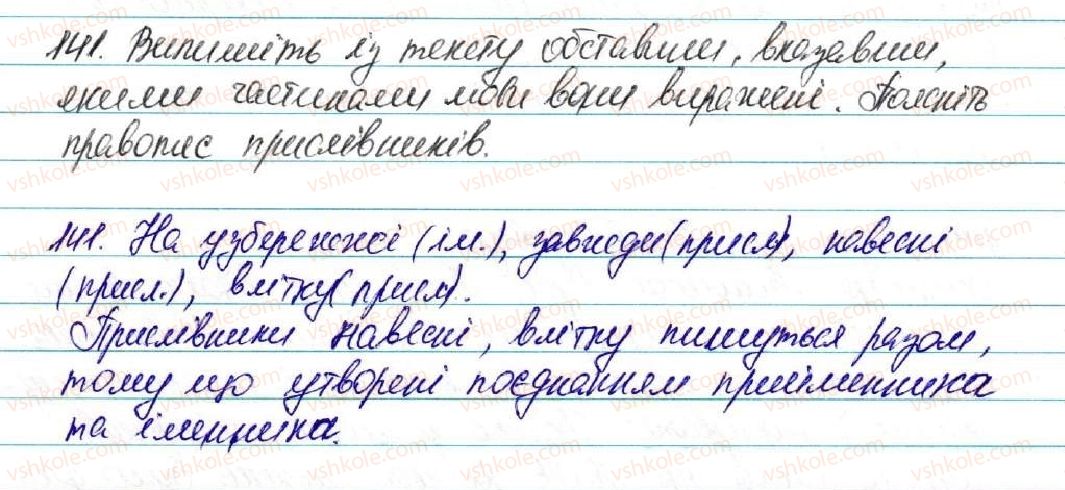 141. Випишіть із тексту обставини, вказавши,
якими частинами мови вони виражені. Поясніть
правопис прислівників.
141. На узбережжі (ім.), завжди (присл), навесні
(присл.), влітку (присл).
Прислівники навесні, влітку пишуться разом,
тому що утворені поєднанням прийменника
та іменника.